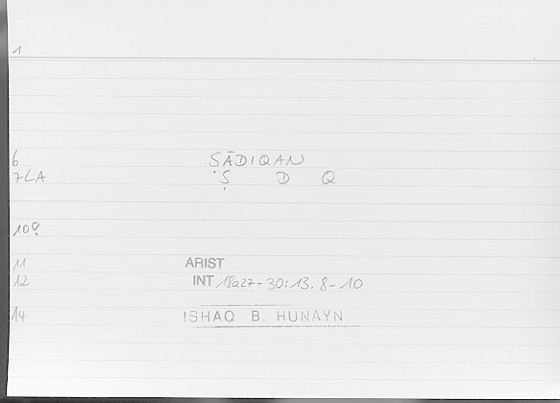 1
6 ṢĀDIQAN
7LA Ṣ D Q
10?
11 ARIST
12 INT 18a27-30:13.8-10
14 ISHAQ B. HUNAYN